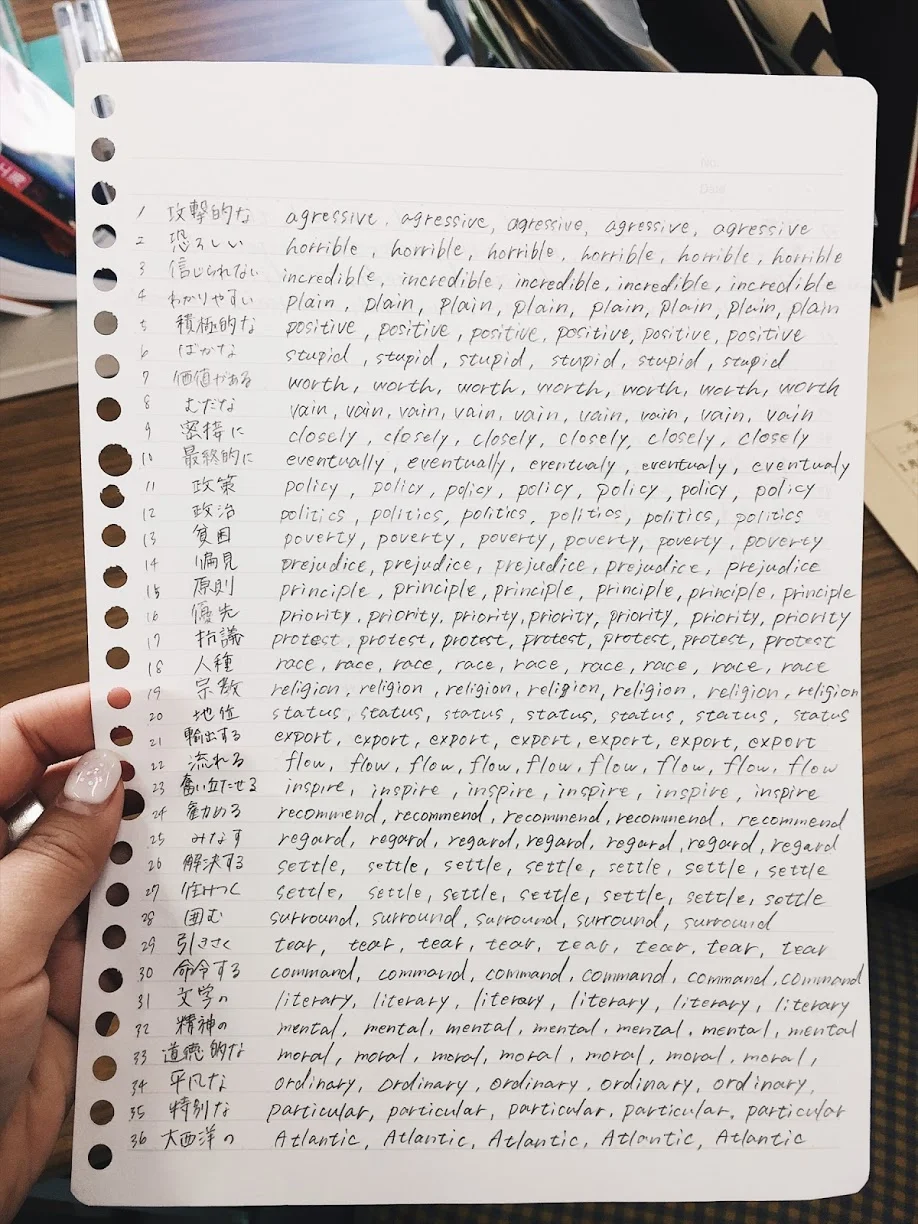 No.
Date
1 攻撃的な agressive, agressive, agressive, agressive, agressive
2 恐ろしい horrible, horrible, horrible, horrible, horrible, horrible
3 信じられない incredible, incredible, incredible, incredible, incredible
4 わかりやすい plain, plain, plain, plain, plain, plain, plain, plain
5 積極的な positive, positive, positive, positive, positive, positive
6 ばかな stupid, stupid, stupid, stupid, stupid, stupid
7 価値がある worth, worth, worth, worth, worth, worth, worth
8 むだな vain, vain, vain, vain, vain, vain, vain, vain, vain
9 密接に closely, closely, closely, closely, closely, closely
10 最終的に eventually, eventually, eventualy, eventualy, eventualy
11 政策 policy, policy, policy, policy, policy, policy, policy
12 政治 politics, politics, politics, politics, politics, politics
13 貧困 poverty, poverty, poverty, poverty, poverty, poverty
14 偏見 prejudice, prejudice, prejudice, prejudice, prejudice
15 原則 principle, principle, principle, principle, principle, principle
16 優先 priority, priority, priority, priority, priority, priority, priority
17 抗議 protest, protest, protest, protest, protest, protest, protest
18 人種 race, race, race, race, race, race, race, race, race
19 宗教 religion, religion, religion, religion, religion, religion, religion
20 地位 status, status, status, status, status, status, status
21 輸出する export, export, export, export, export, export, export
22 流れる flow, flow, flow, flow, flow, flow, flow, flow, flow
23 奮い立たせる inspire, inspire, inspire, inspire, inspire, inspire
24 勧める recommend, recommend, recommend, recommend, recommend
25 みなす regard, regard, regard, regard, regard, regard, regard
26 解決する settle, settle, settle, settle, settle, settle, settle
27 住みつく settle, settle, settle, settle, settle, settle, settle
28 囲む surround, surround, surround, surround, surround
29 引きさく tear, tear, tear, tear, tear, tear, tear, tear
30 命令する command, command, command, command, command, command
31 文学の literary, literary, literary, literary, literary, literary
32 精神の mental, mental, mental, mental, mental, mental, mental
33 道徳的な moral, moral, moral, moral, moral, moral, moral,
34 平凡な ordinary, ordinary, ordinary, ordinary, ordinary,
35 特別な particular, particular, particular, particular, particular
36 大西洋の Atlantic, Atlantic, Atlantic, Atlantic, Atlantic